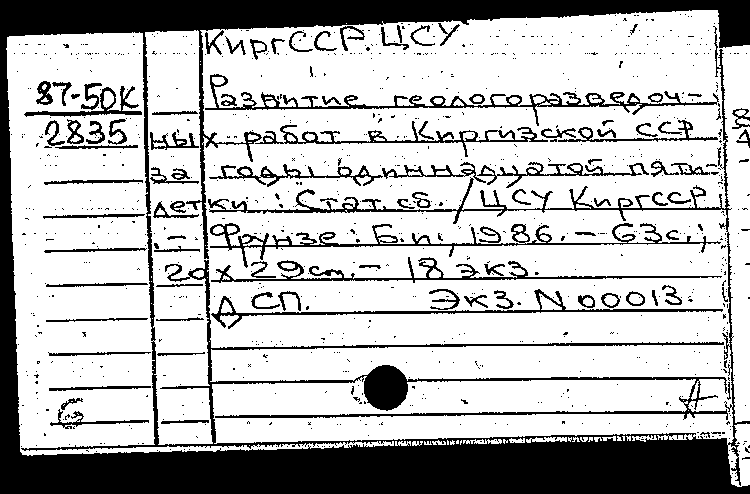 КиргССР. ЦСУ.
87-50К Развитие геологоразведоч-
2835 ных работ в Киргизской ССР
за годы одиннадцатой пяти-
летки : Стат. сб. / ЦСУ КиргССР
.- Фрунзе : Б.и., 1986. - 63с.;
20 x 29см. - 18 экз.
ДСП. Экз. N 00013.
6 А